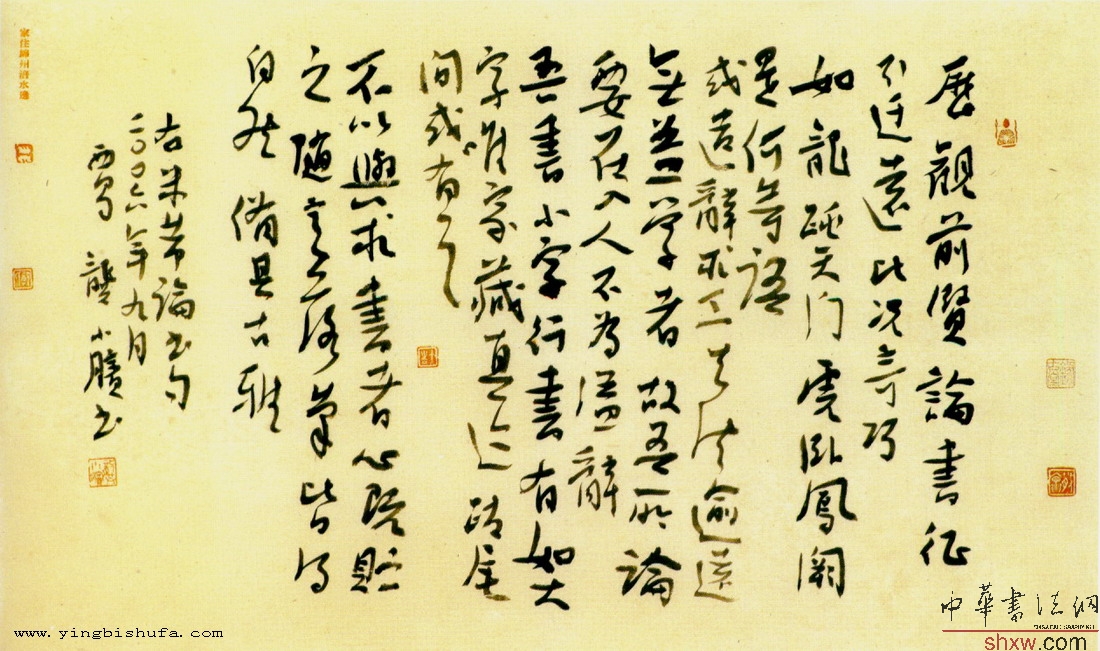 歷觀前賢論書征
引迂遠比况奇巧
如龍跳天门虎臥鳳闕
是何等語
或遣辭求工去法逾遠
無益學者故吾所論
要在入人不為溢辭
吾書小字行書有如大
字唯家藏真迹跋尾
間或有之
不以與求書者心既貯
之隨意落筆皆得
自然備具古雅
右米芾論书句
二〇〇六年九月
西蜀龔小膑书
www.yingbishufa.com
中華書法網
shxw.com